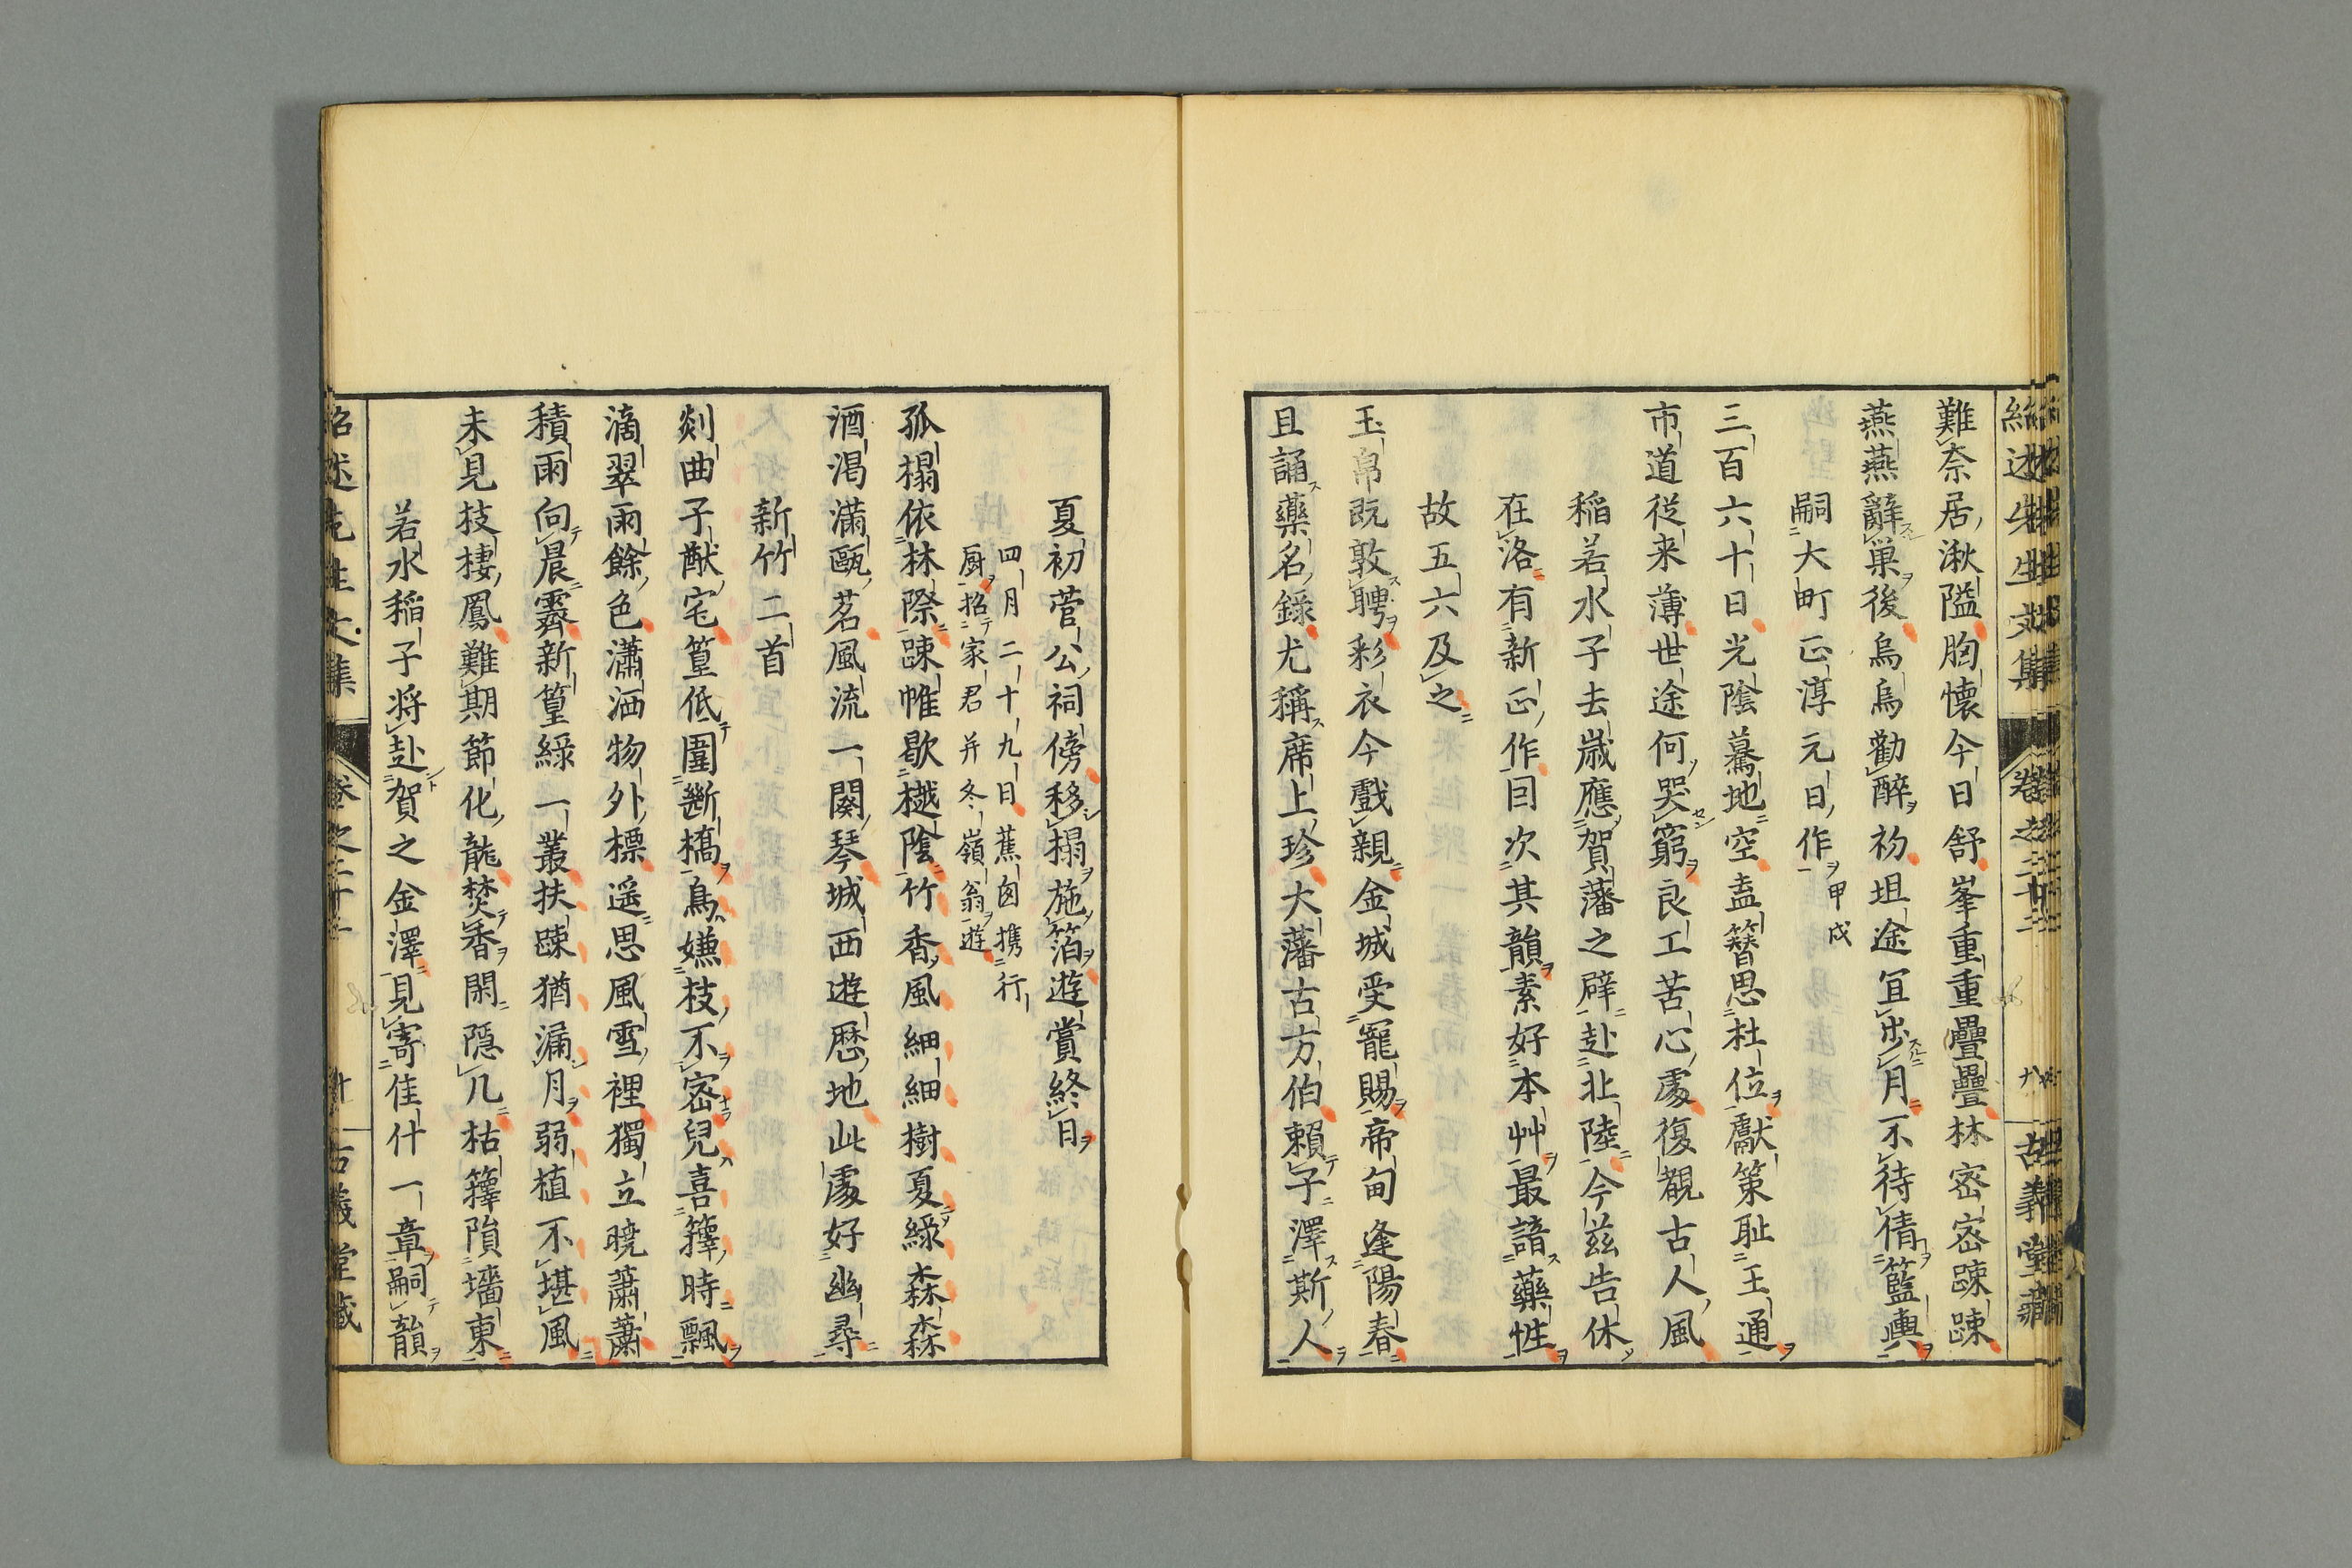 難奈居湫隘胸懷今日舒峯重重疊疊林密密踈踈
燕燕辭巢後烏烏勸醉初坦途宜出月不待倩籃輿
嗣大町正淳元日作甲戌
三百六十日光陰驀地空盍簪思杜位獻策耻王通
市道従来薄世途何哭窮良工苦心處復覩古人風
稲若水子去歳應賀藩之辟赴北陸今茲告休
在洛有新正作囙次其韻素好本艸最諳藥性
故五六及之
玉帛既敦聘彩衣今戲親金城受寵賜帝甸逢陽春
且誦藥名錄尤稱席上珍大藩古方伯賴子澤斯人
夏初菅公祠傍移榻施箔遊賞終日
四月二十九日蕉囪携行
厨招家君并冬嶺翁遊
孤榻依林際踈帷歇樾陰竹香風細細樹夏綠森森
酒渇滿甌茗風流一闋琴城西遊歴地此處好幽尋
新竹二首
剡曲子猷宅篁低圍斷橋鳥嫌枝不密兒喜籜時飄
滴翠雨餘色瀟洒物外標遥思風雪裡獨立曉蕭蕭
積雨向晨霽新篁綠一叢扶踈猶漏月弱植不堪風
未見枝棲鳳難期節化龍焚香閑隠几枯籜隕墻東
若水稲子将赴賀之金澤見寄佳什一章嗣韻